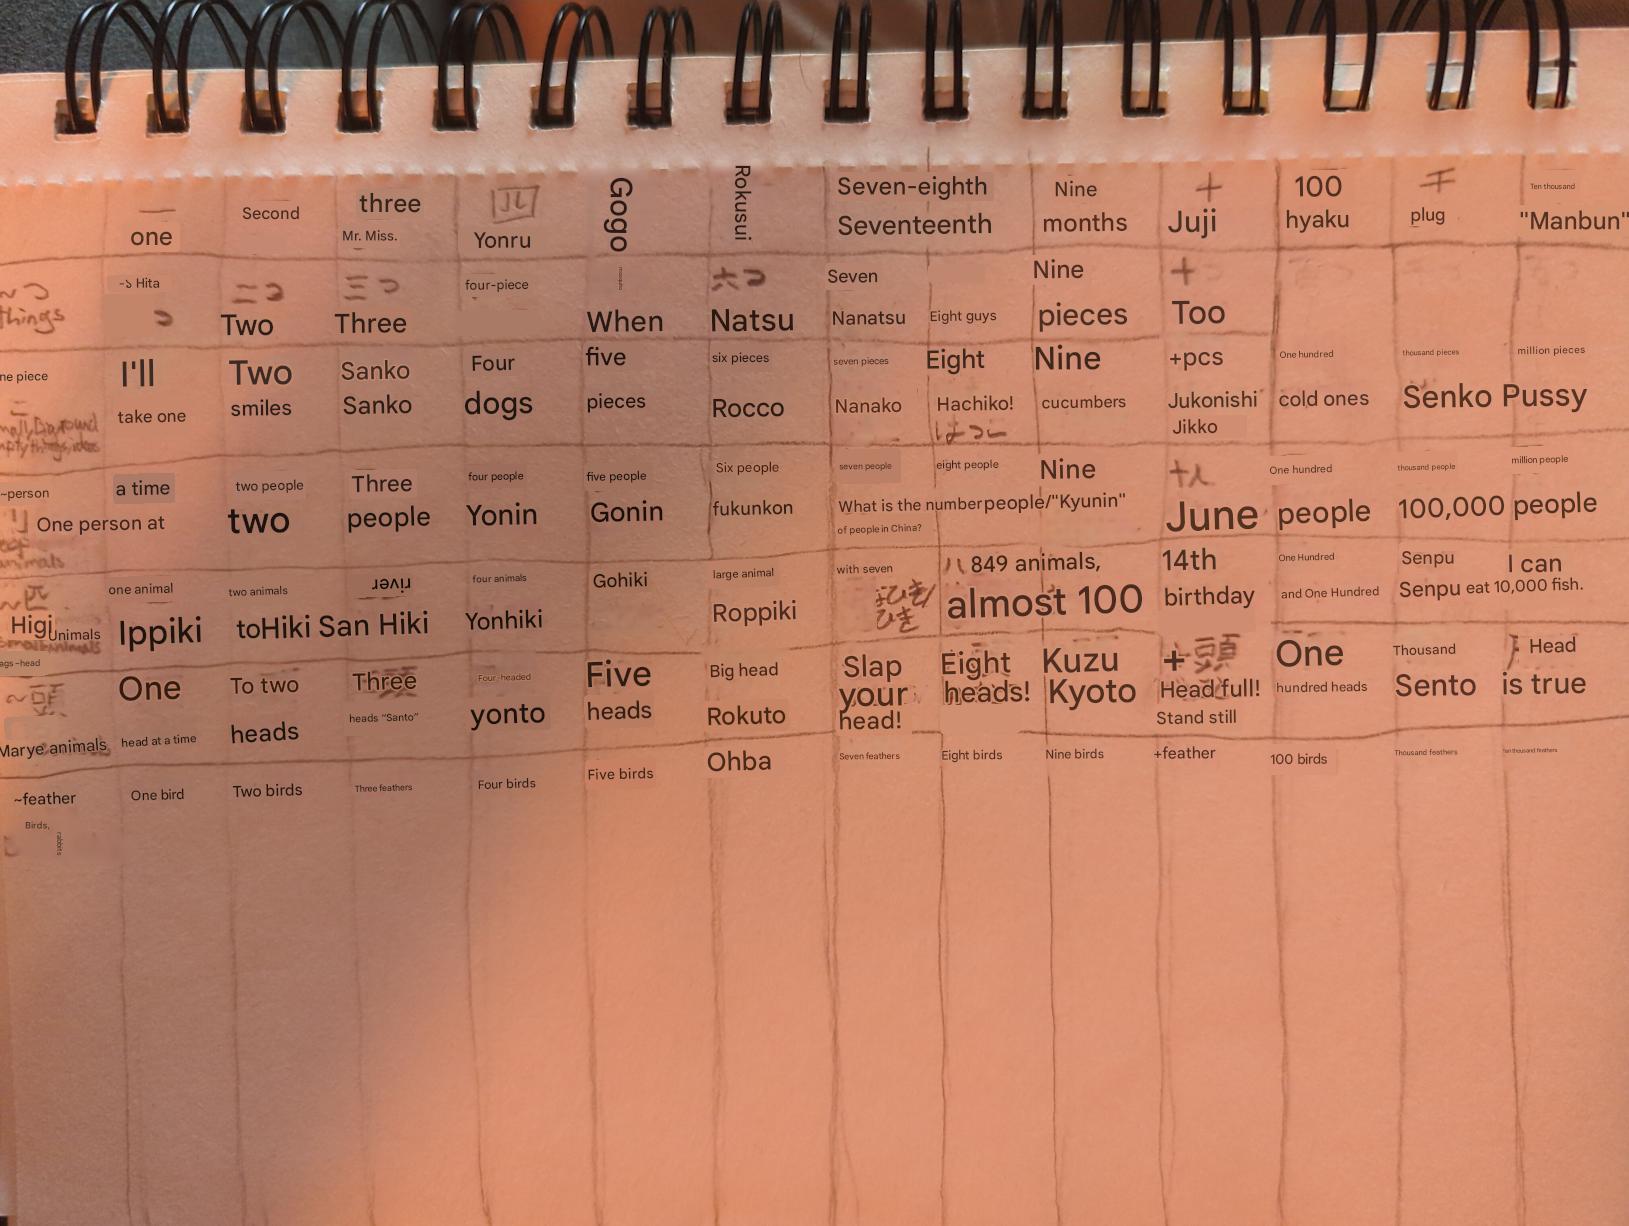 一 Second three 四 Gogo Rokusui Seven-eighth Nine 十 100 千 Ten thousand
one Mr. Miss. Yonru Seventeenth months Juji hyaku plug "Manbun"
~つ -っ Hita 二つ 三つ four-piece 六つ Seven Nine 十
things つ Two Three When Natsu Nanatsu Eight guys pieces Too
ne piece I'll Two Sanko Four five six pieces seven pieces Eight Nine +pcs One hundred thousand pieces million pieces
take one smiles Sanko dogs pieces Rocco Nanako Hachiko! cucumbers Jukonishi cold ones Senko Pussy
はっこ Jikko
~person a time two people Three four people five people Six people seven people eight people Nine 十人 One hundred thousand people million people
One person at two people Yonin Gonin fukunkon What is the number people/"Kyunin" June people 100,000 people
of people in China?
animals
~匹 one animal two animals river four animals Gohiki large animal with seven 八 849 animals, 14th One Hundred Senpu I can
Higi Unimals Ippiki toHiki San Hiki Yonhiki Roppiki ひき almost 100 birthday and One Hundred Senpu eat 10,000 fish.
small animals
ags-head
~頭 One To two Three Four-headed Five Big head Slap Eight Kuzu +頭 One Thousand Head
heads "Santo" yonto heads Rokuto your heads! Kyoto Head full! hundred heads Sento is true
Marye animals head at a time heads head! Stand still
~feather One bird Two birds Three feathers Four birds Five birds Ohba Seven feathers Eight birds Nine birds +feather 100 birds Thousand feathers Ten thousand feathers
Birds, rabbits